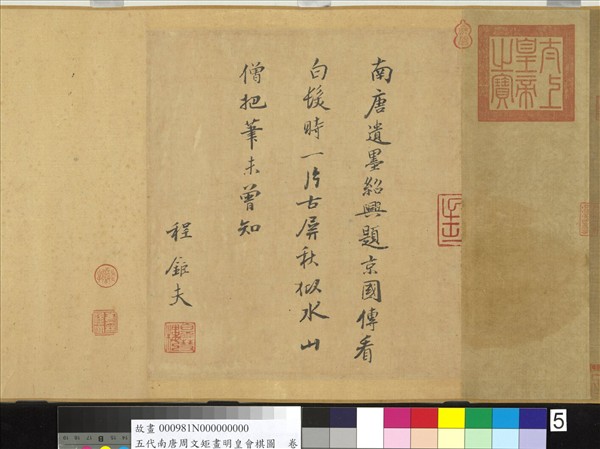 南唐遺墨紹興題京國傳看
白髮時一片古屏秋似水山
僧把筆未曾知
程鉅夫
太上皇帝之寶
故畫 000981N000000000
五代南唐周文矩畫明皇會棋圖 卷
5